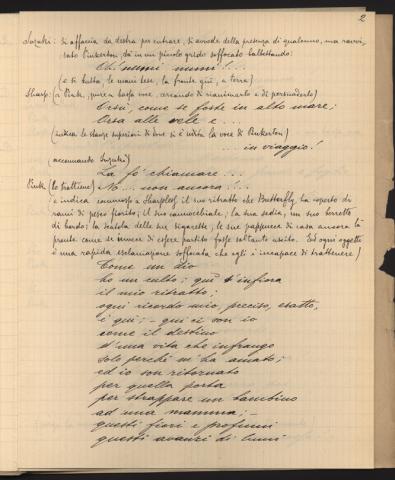 2
Suzuki: si affaccia da destra per entrare, si avvede della presenza di qualcuno, ma ravvi-
sato Pinkerton, dà in un piccolo grido soffocato balbettando:
Oh! numi numi!...
(e si butta, le mani tese, la fronte giù, a terra)
Sharp: (a Pink, mezza bassa voce, cercando di rianimarlo e di persuaderlo)
Orsù, come se foste in alto mare;
Orsa alle vele e ...
(indica le stanze superiori di dove si è udita la voce di Pinkerton)
... in viaggio!
(accennando Suzuki)
La fò chiamare ...
Pink (lo trattiene) No ... non ancora!...
e indica commosso a Sharpless il suo ritratto che Butterfly ha coperto di
rami di pesco fiorito; il suo cannocchiale; la sua sedia, un suo berretto
di bordo; la scatola delle sue sigarette; le sue pappucce di casa ancora là
pronte come se invece di essere partito fosse soltanto uscito. Ed ogni oggetto
è una rapida esclamazione soffocata che egli è incapace di trattenere)
Come un dio
ho un culto: qui s'infiora
il mio ritratto:
ogni ricordo mio, preciso, esatto,
è qui; – qui ci son io
come il destino
d'una vita che infrango
solo perchè m'ha amato;
ed io son ritornato
per quella porta
per strappare un bambino
ad una mamma; –
questi fiori e profumi
questi avanzi di lumi